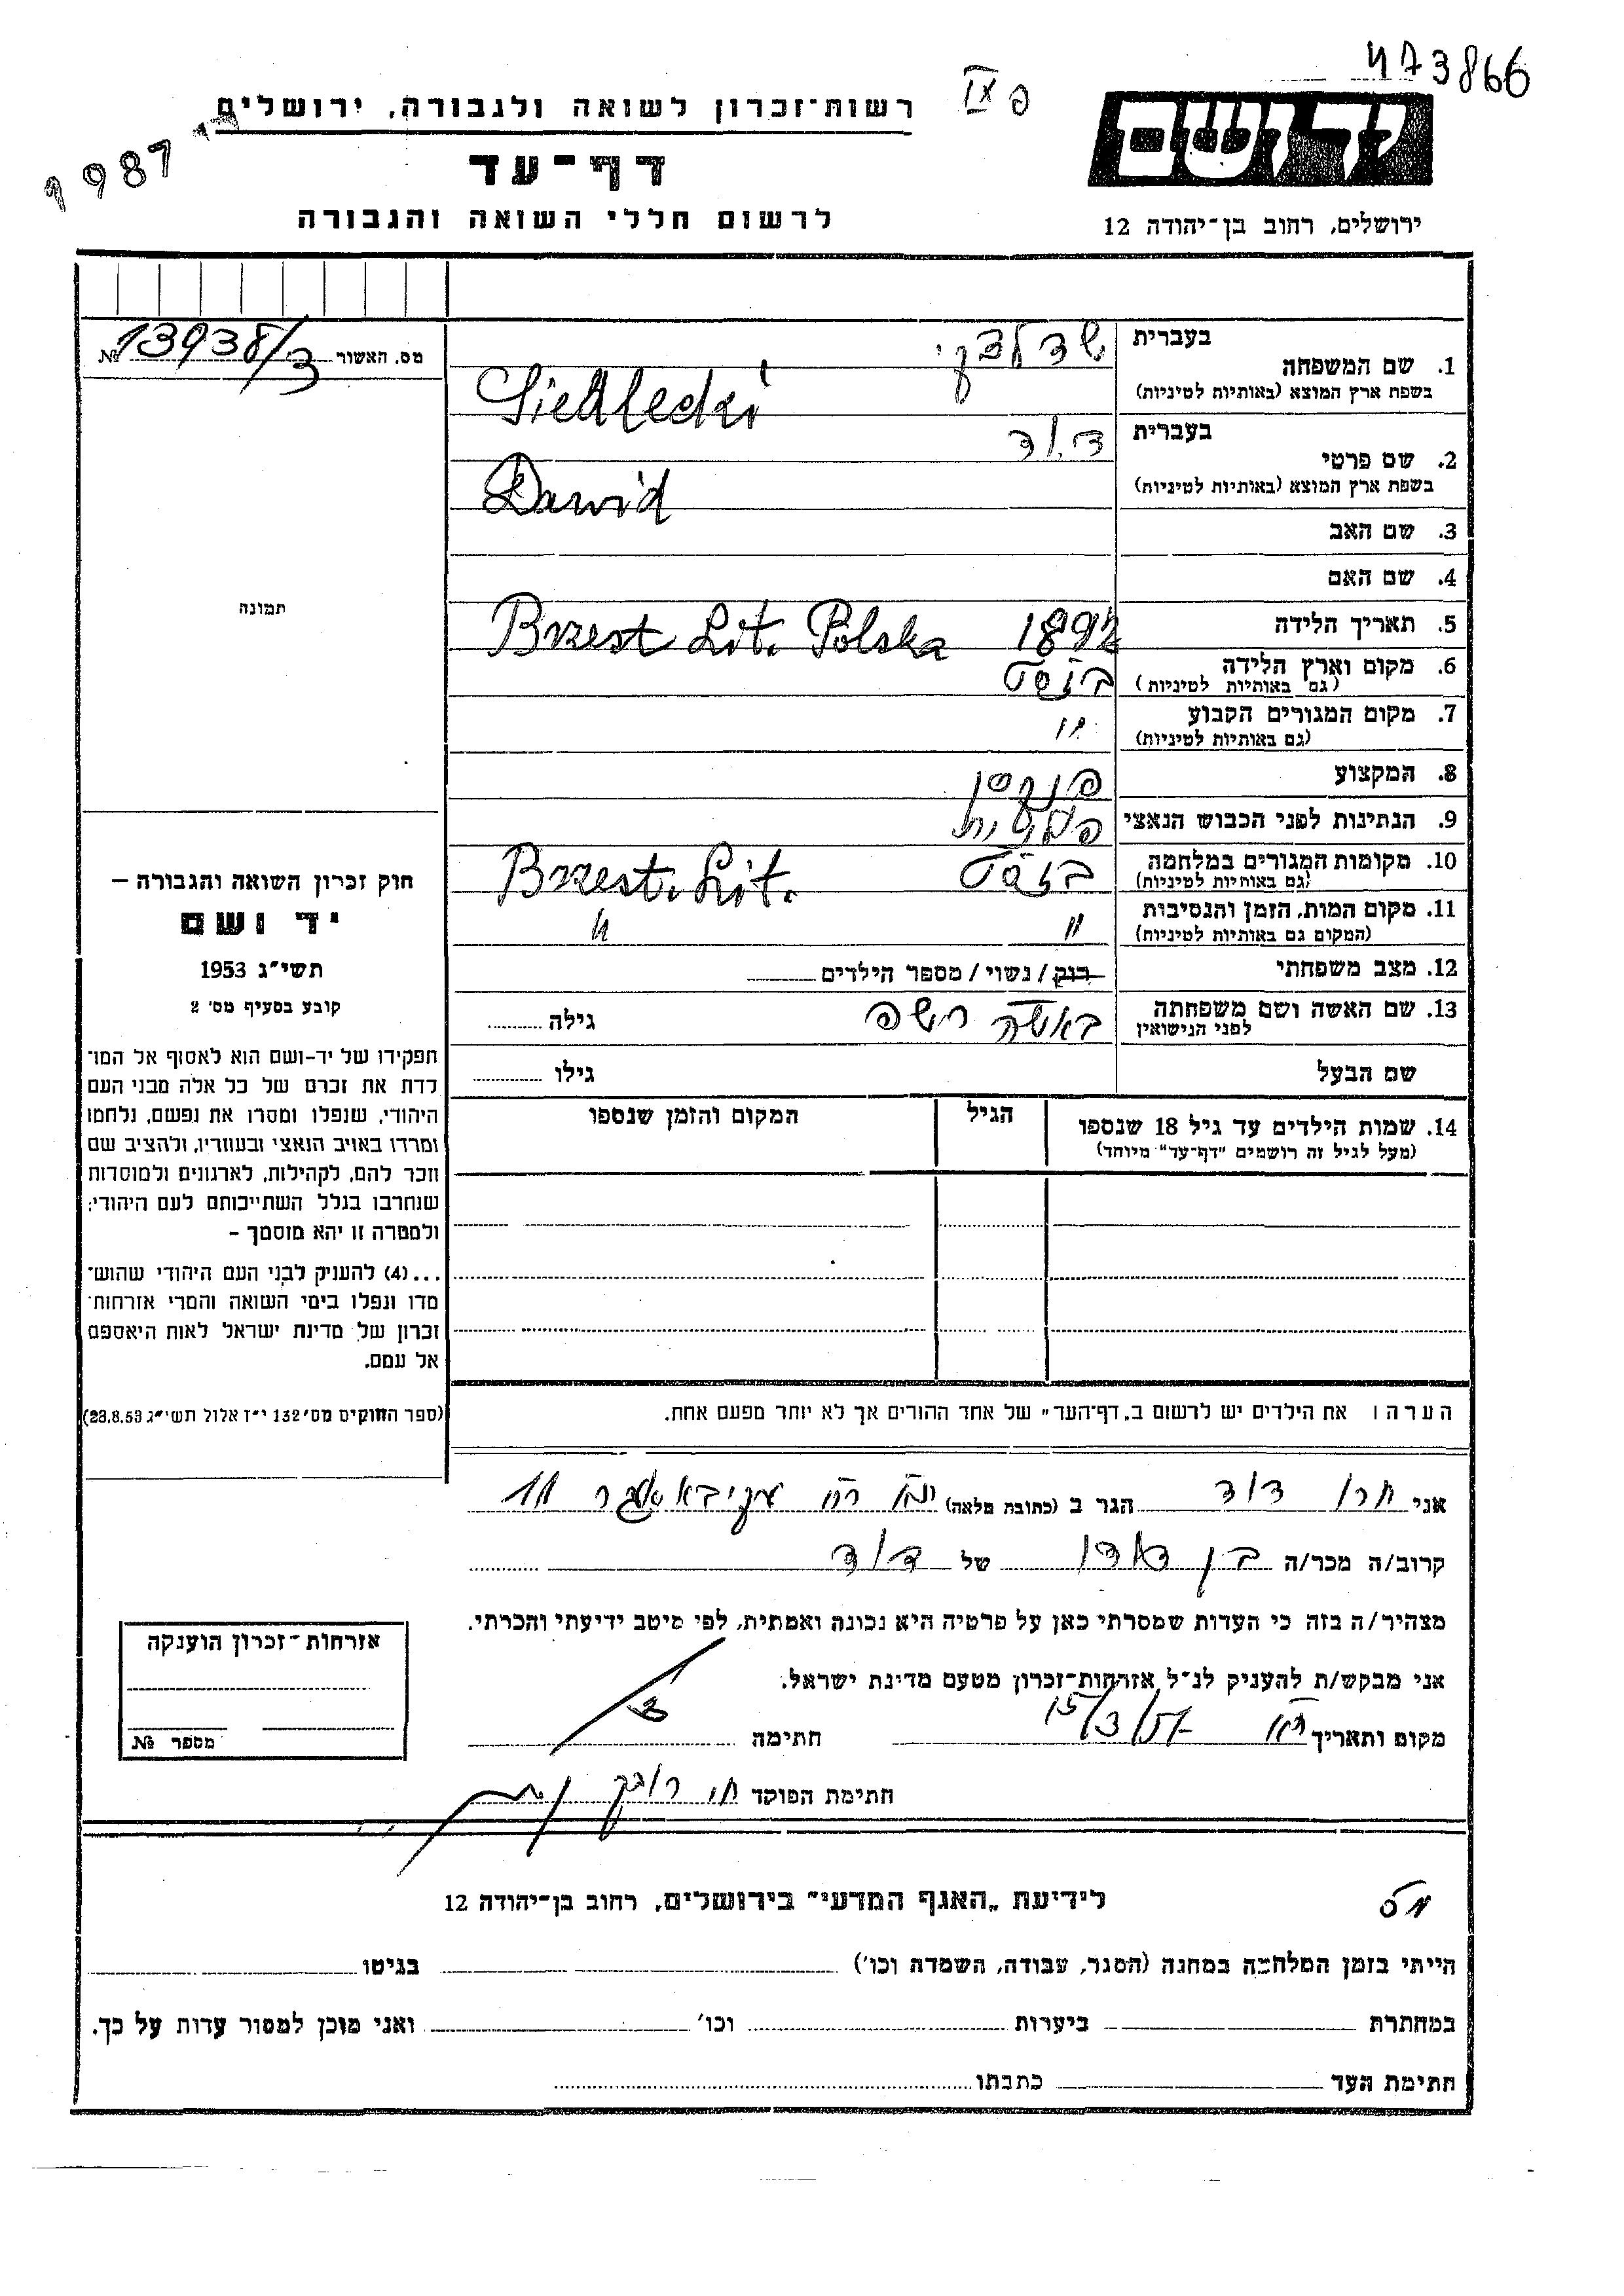 473866
פ IX
רשות-זכרון לשואה ולגבורה, ירושלים
1987
יד ושם
דף-עד
לרשום חללי השואה והגבורה
ירושלים, רחוב בן-יהודה 12
מס. האשור 13938/3 №
תמונה
חוק זכרון השואה והגבורה –
יד ושם
תשי"ג 1953
קובע בסעיף מס' 2
תפקידו של יד-ושם הוא לאסוף אל המו־
לדת את זכרם של כל אלה מבני העם
היהודי, שנפלו ומסרו את נפשם, נלחמו
ומרדו באויב הנאצי ובעוזריו, ולהציב שם
וזכר להם, לקהילות, לארגונים ולמוסדות
שנחרבו בגלל השתייכותם לעם היהודי;
ולמטרה זו יהא מוסמך –
...(4) להעניק לבני העם היהודי שהוש־
מדו ונפלו בימי השואה והמרי אזרחות־
זכרון של מדינת ישראל לאות היאספם
אל עמם.
(ספר החוקים מס' 132 י"ז אלול תשי"ג 23.8.53)
בעברית שדלצקי
1. שם המשפחה
בשפת ארץ המוצא (באותיות לטיניות) Siedlecki
בעברית דוד
2. שם פרטי
בשפת ארץ המוצא (באותיות לטיניות) Dawid
3. שם האב
4. שם האם
5. תאריך הלידה 1892 Brzest Lit. Polska
6. מקום וארץ הלידה
(גם באותיות לטיניות)
7. מקום המגורים הקבוע "
(גם באותיות לטיניות)
8. המקצוע
9. הנתינות לפני הכבוש הנאצי
10. מקומות המגורים במלחמה Brzest. Lit.
(גם באותיות לטיניות)
11. מקום המות, הזמן והנסיבות " "
(המקום גם באותיות לטיניות)
12. מצב משפחתי רוק / נשוי / מספר הילדים
13. שם האשה ושם משפחתה גילה
לפני הנישואין
שם הבעל גילו
14. שמות הילדים עד גיל 18 שנספו הגיל המקום והזמן שנספו
(מעל לגיל זה רושמים "דף-עד" מיוחד)
הערה: את הילדים יש לרשום ב"דף-העד" של אחד ההורים אך לא יותר מפעם אחת.
אני דוד הגר ב (כתובת מלאה)
קרוב/ה מכר/ה בן דודו של דוד
מצהיר/ה בזה כי העדות שמסרתי כאן על פרטיה היא נכונה ואמתית, לפי מיטב ידיעתי והכרתי.
אני מבקש/ת להעניק לנ"ל אזרחות-זכרון מטעם מדינת ישראל.
מקום ותאריך 15/3/57 חתימה
חתימת הפוקד
אזרחות-זכרון הוענקה
מספר №
לידיעת "האגף המדעי" בירושלים, רחוב בן-יהודה 12
הייתי בזמן המלחמה במחנה (הסגר, עבודה, השמדה וכו') בגיטו
במחתרת ביערות וכו' ואני מוכן למסור עדות על כך.
חתימת העד כתבתו